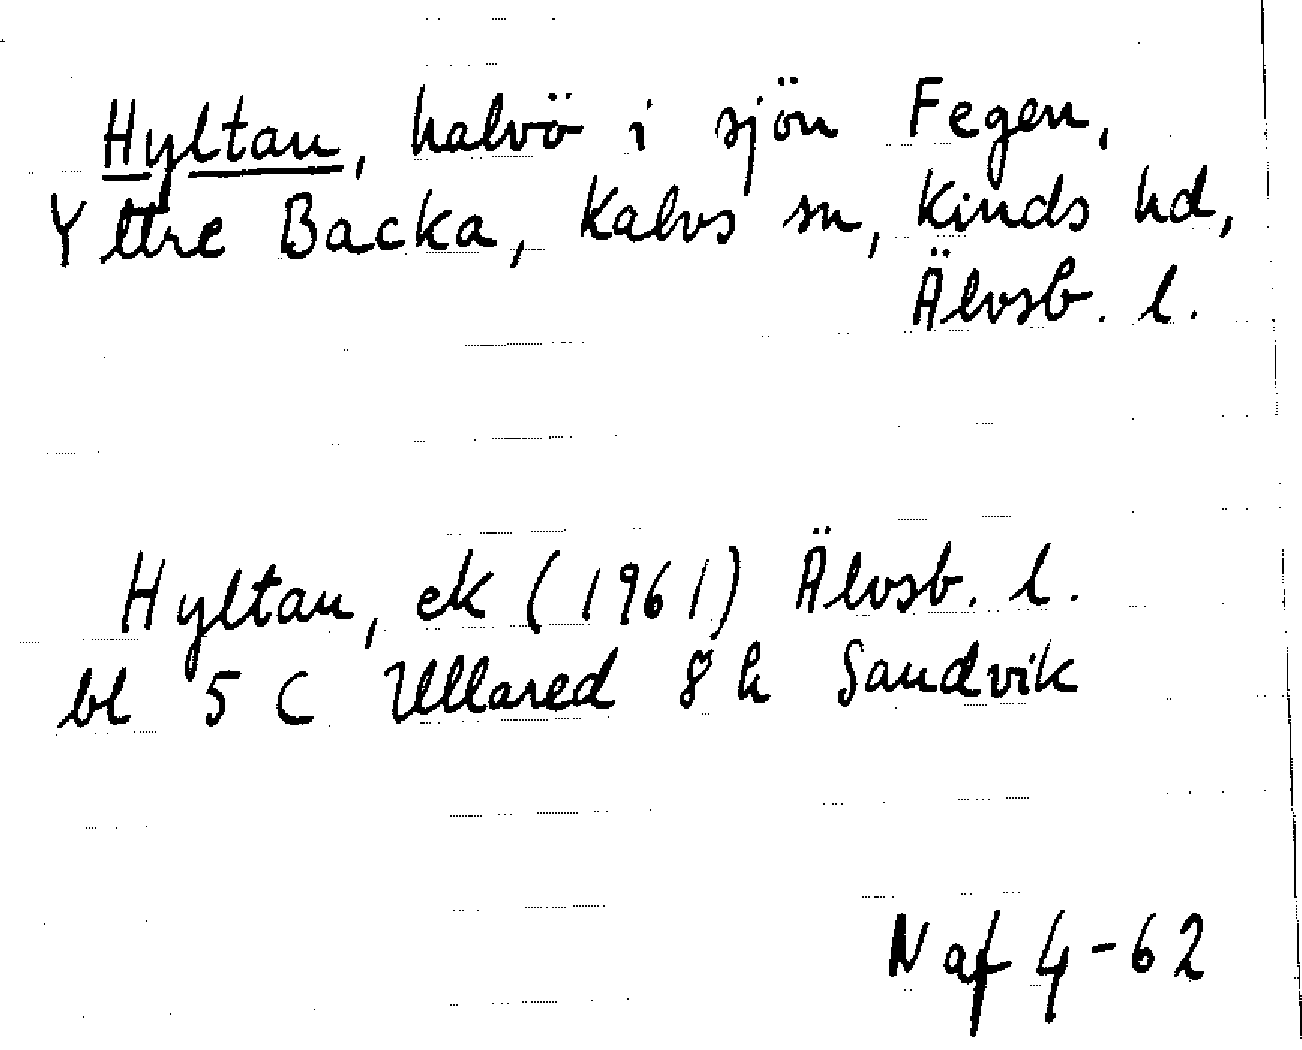 Hyltan, halvö i sjön Fegen,
Yttre Backa, Kalvs sn, Kinds hd,
Älvsb. l.
Hyltan, ek (1961) Älvsb. l.
bl 5 C Ullared 8 h Sandvik
Naf 4-62